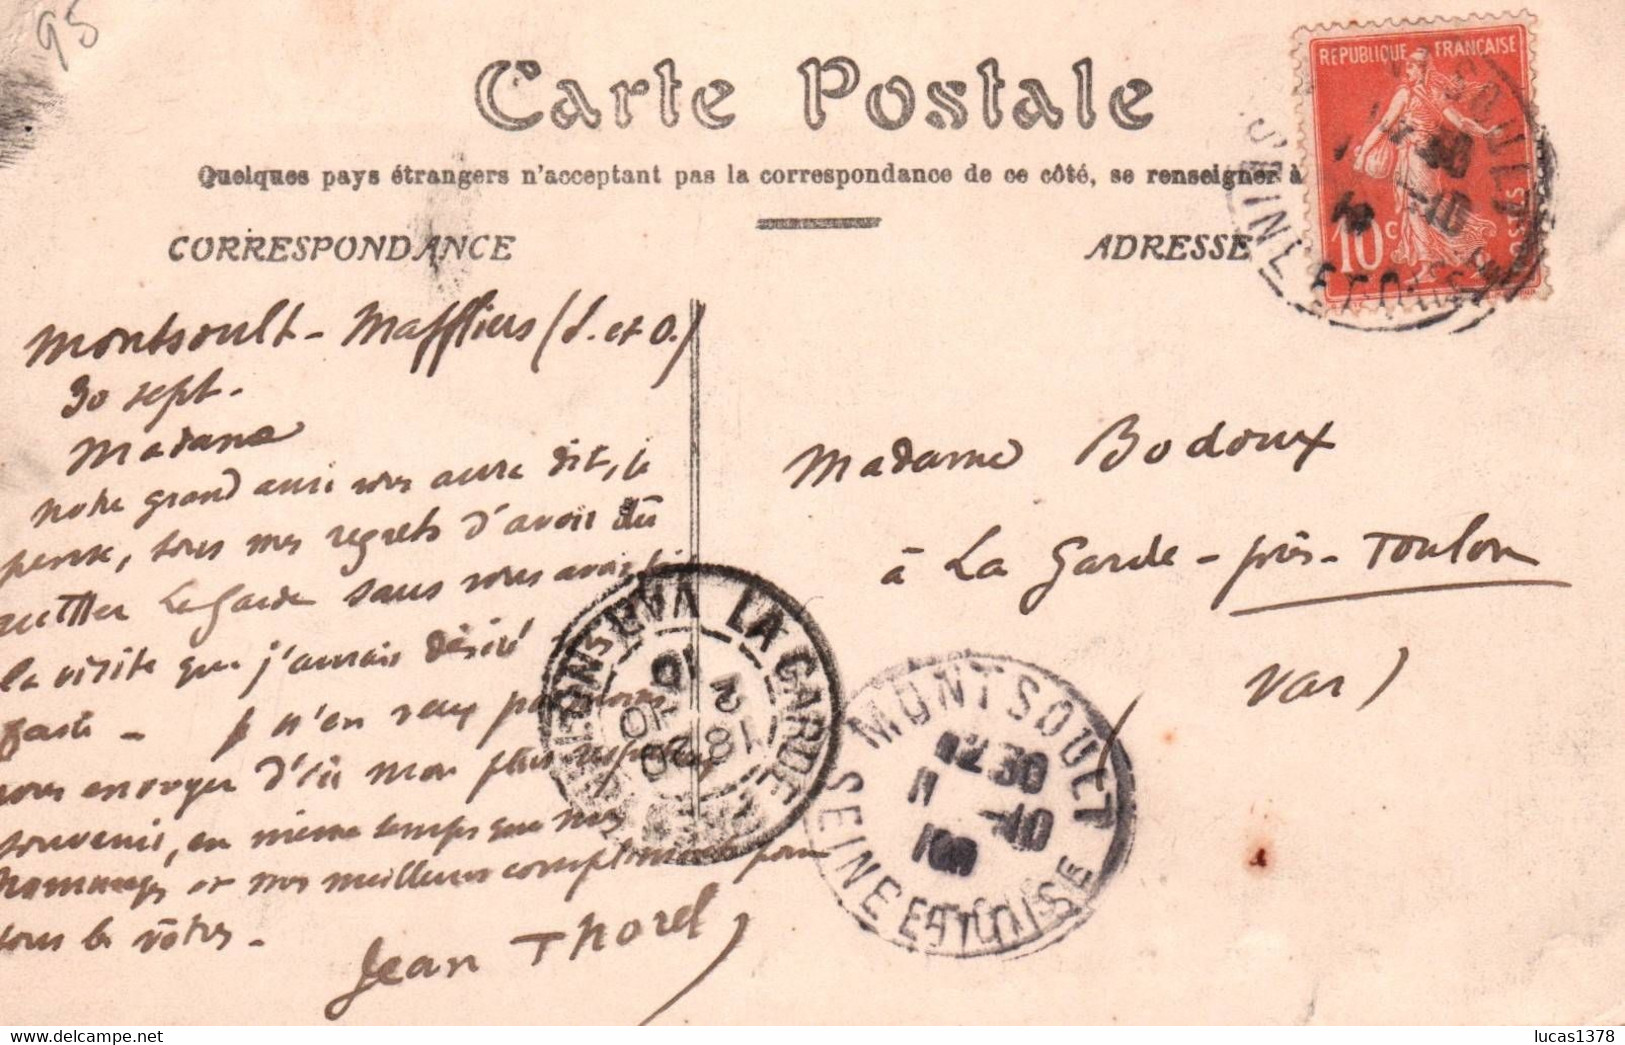 95
Carte Postale
Quelques pays étrangers n'acceptent pas la correspondance de ce côté, se renseigner à
CORRESPONDANCE
ADRESSE
REPUBLIQUE FRANÇAISE
10c
Montsoult-Maffliers (S. et O.)
30 sept.
Madame
notre grand ami vous aura dit, je
pense, tous mes regrets d'avoir dû
quitter La Garde sans vous avoir fait
la visite que j'aurais désiré
faire - Je n'en veux pas moins
vous envoyer d'ici mon plus respectueux
souvenir, en même temps que mes
hommages et nos meilleurs compliments pour
tous les vôtres -
Jean Thorel
Madame Bodoux
à La Garde-près-Toulon
(Var)
LA GARDE
VAR
18 20
2 10
10
MONTSOULT
12 30
1 -10
SEINE ET OISE
lucas1378